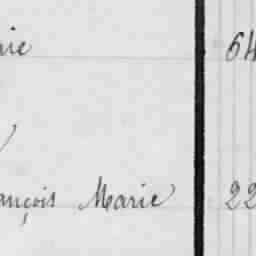 rie 64
ançois Marie 22